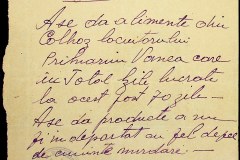 A se da alimente din
Colhoz locuitorului
Primariu Vanca care
in Total zile lucrate
la acest post 70 zile
A se da producte a nu
fi indepartat au fel de fel
de cuvinte murdare